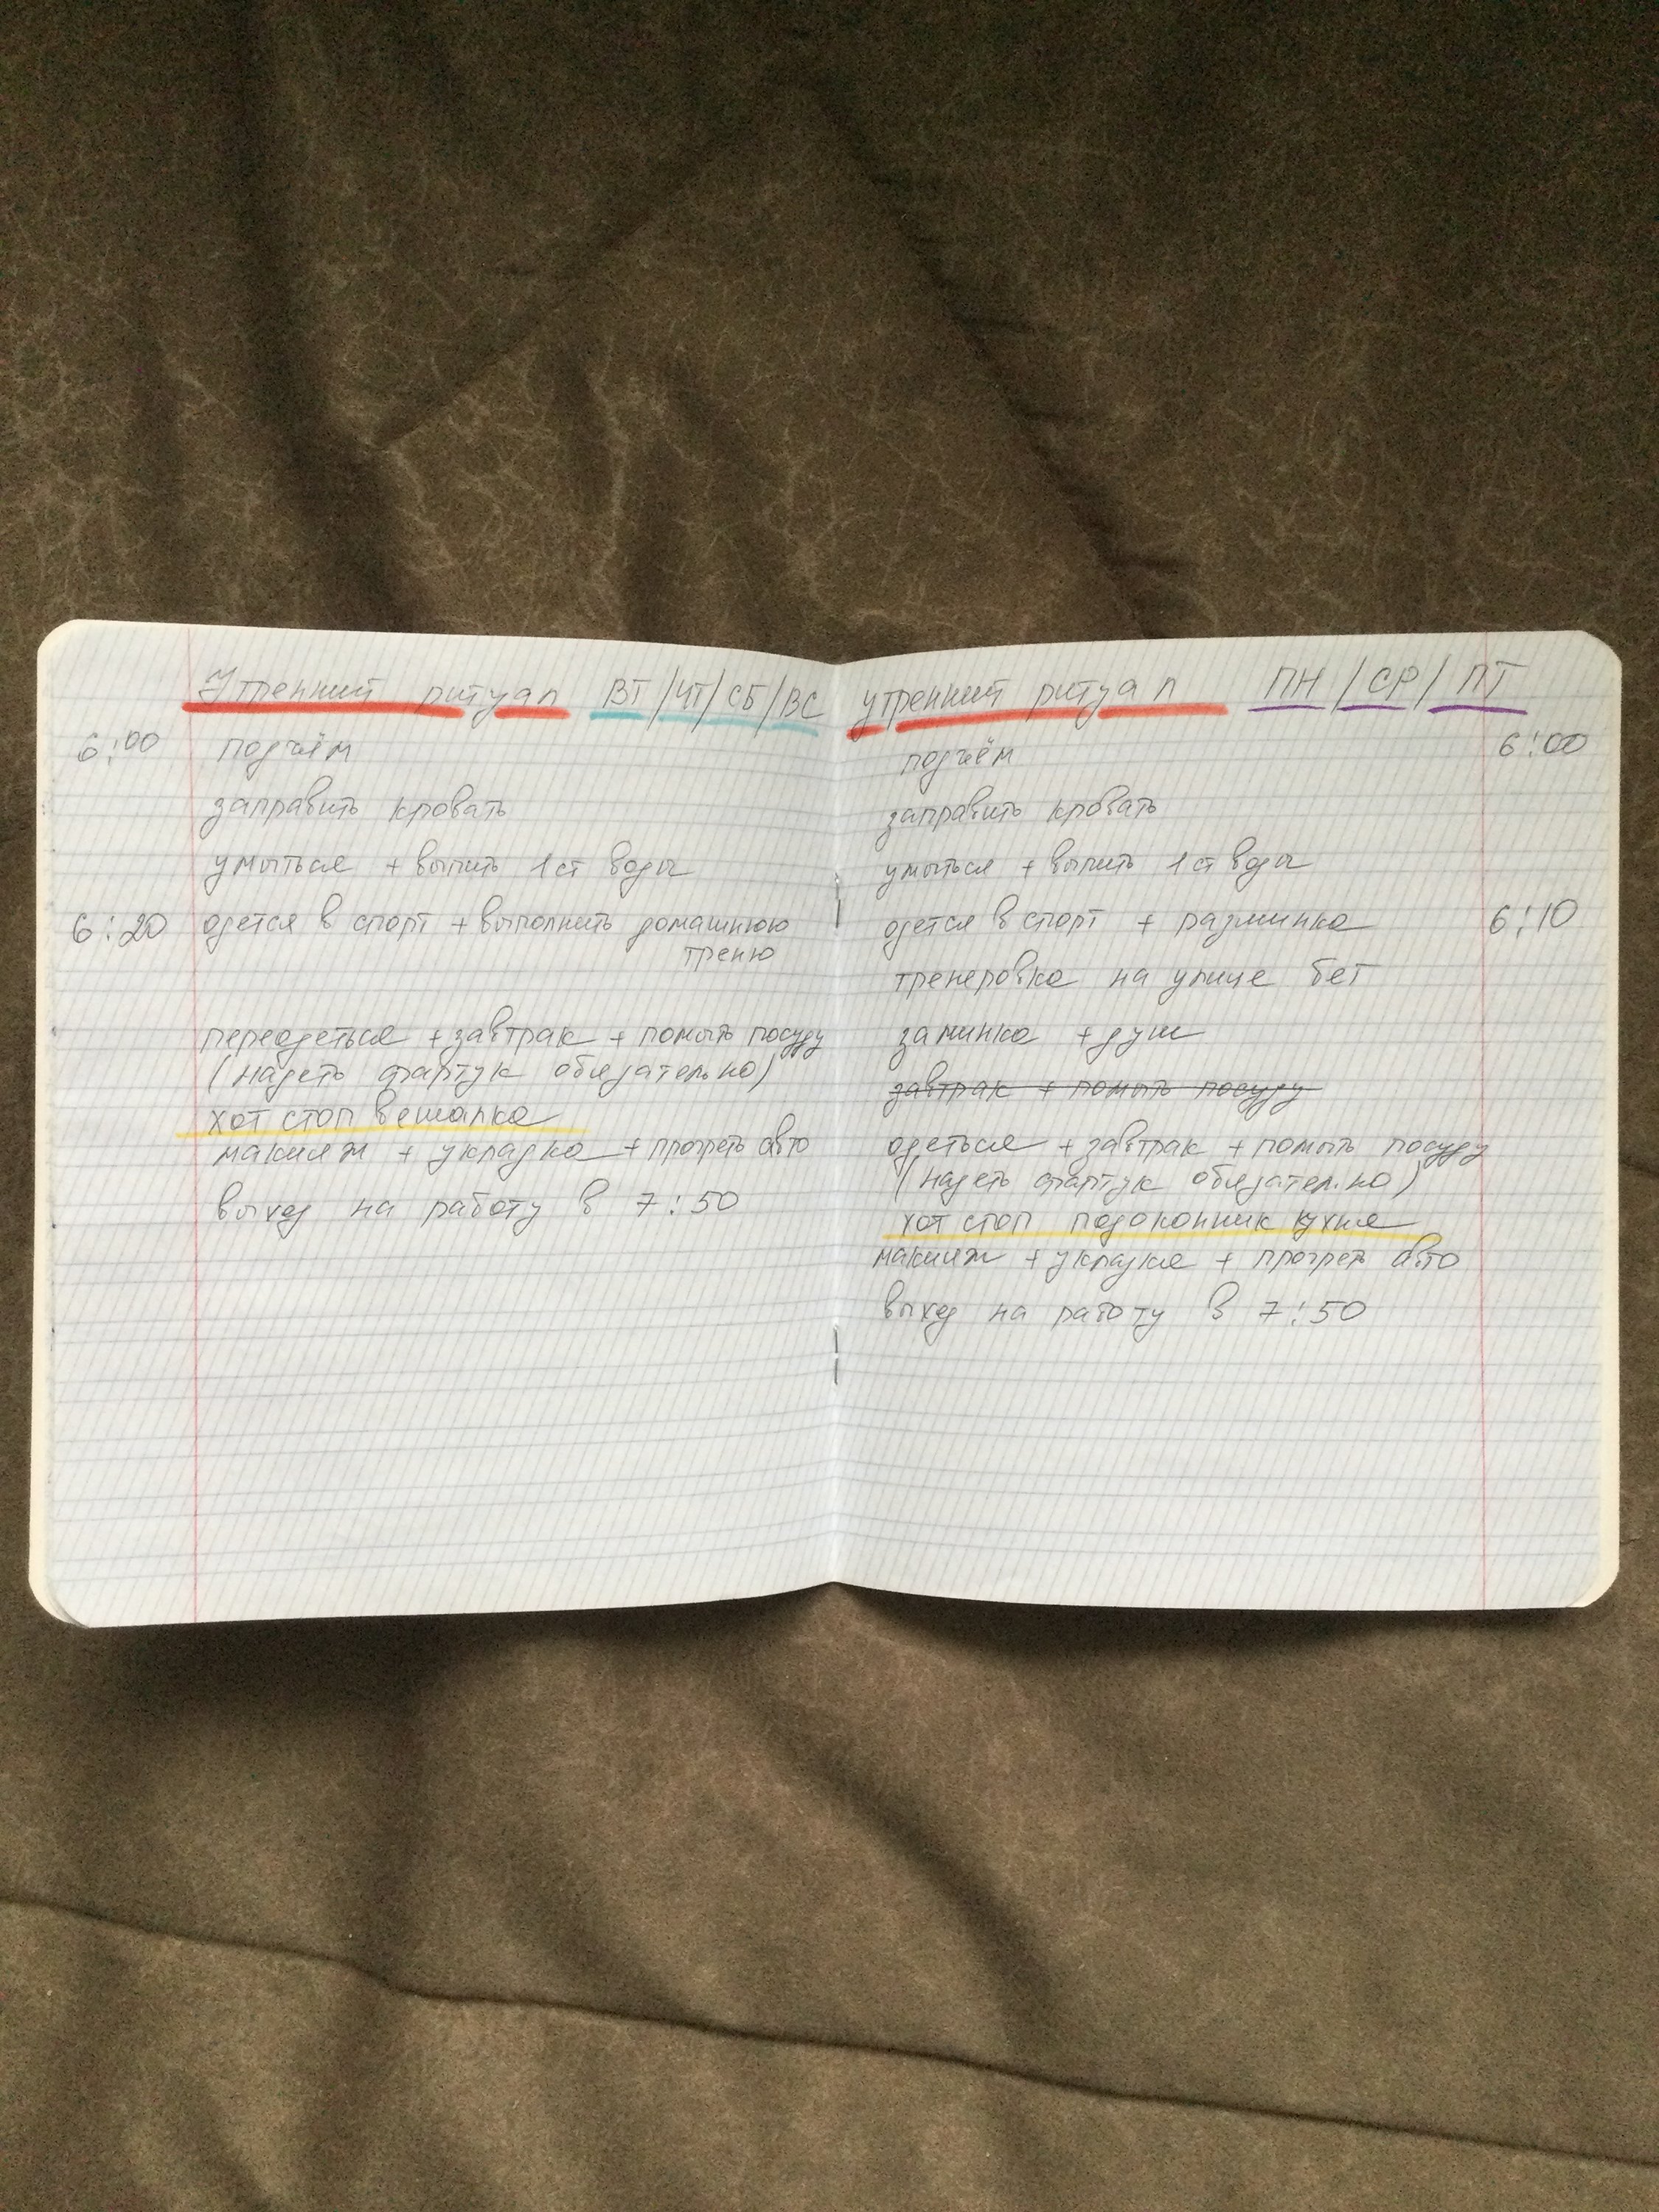 Утренний ритуал ВТ/ЧТ/СБ/ВС
6:00 подъём
заправить кровать
умыться + выпить 1 ст воды
6:20 одется в спорт + выполнить домашнюю
треню
переодеться + завтрак + помыть посуду
(надеть фартук обязательно)
хот стоп вешалка
макияж + укладка + прогреть авто
выход на работу в 7:50
утренний ритуал ПН/СР/ПТ
подъём 6:00
заправить кровать
умыться + выпить 1 ст воды
одется в спорт + разминка 6:10
тренеровка на улице бег
заминка + душ
завтрак + помыть посуду
одеться + завтрак + помыть посуду
(надеть фартук обязательно)
хот стоп подоконник кухня
макияж + укладка + прогреть авто
выход на работу в 7:50